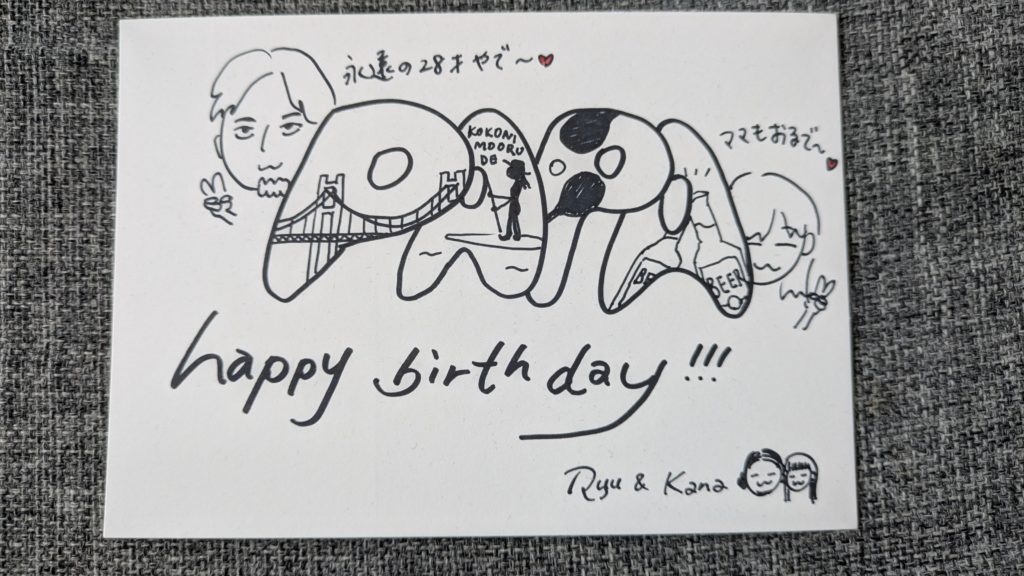 永遠の28才やで〜♥
PAPA
KOKONI
MOORU
DE
ママもおるで〜♥
BE
BEER
happy birthday!!!
Ryu & Kana